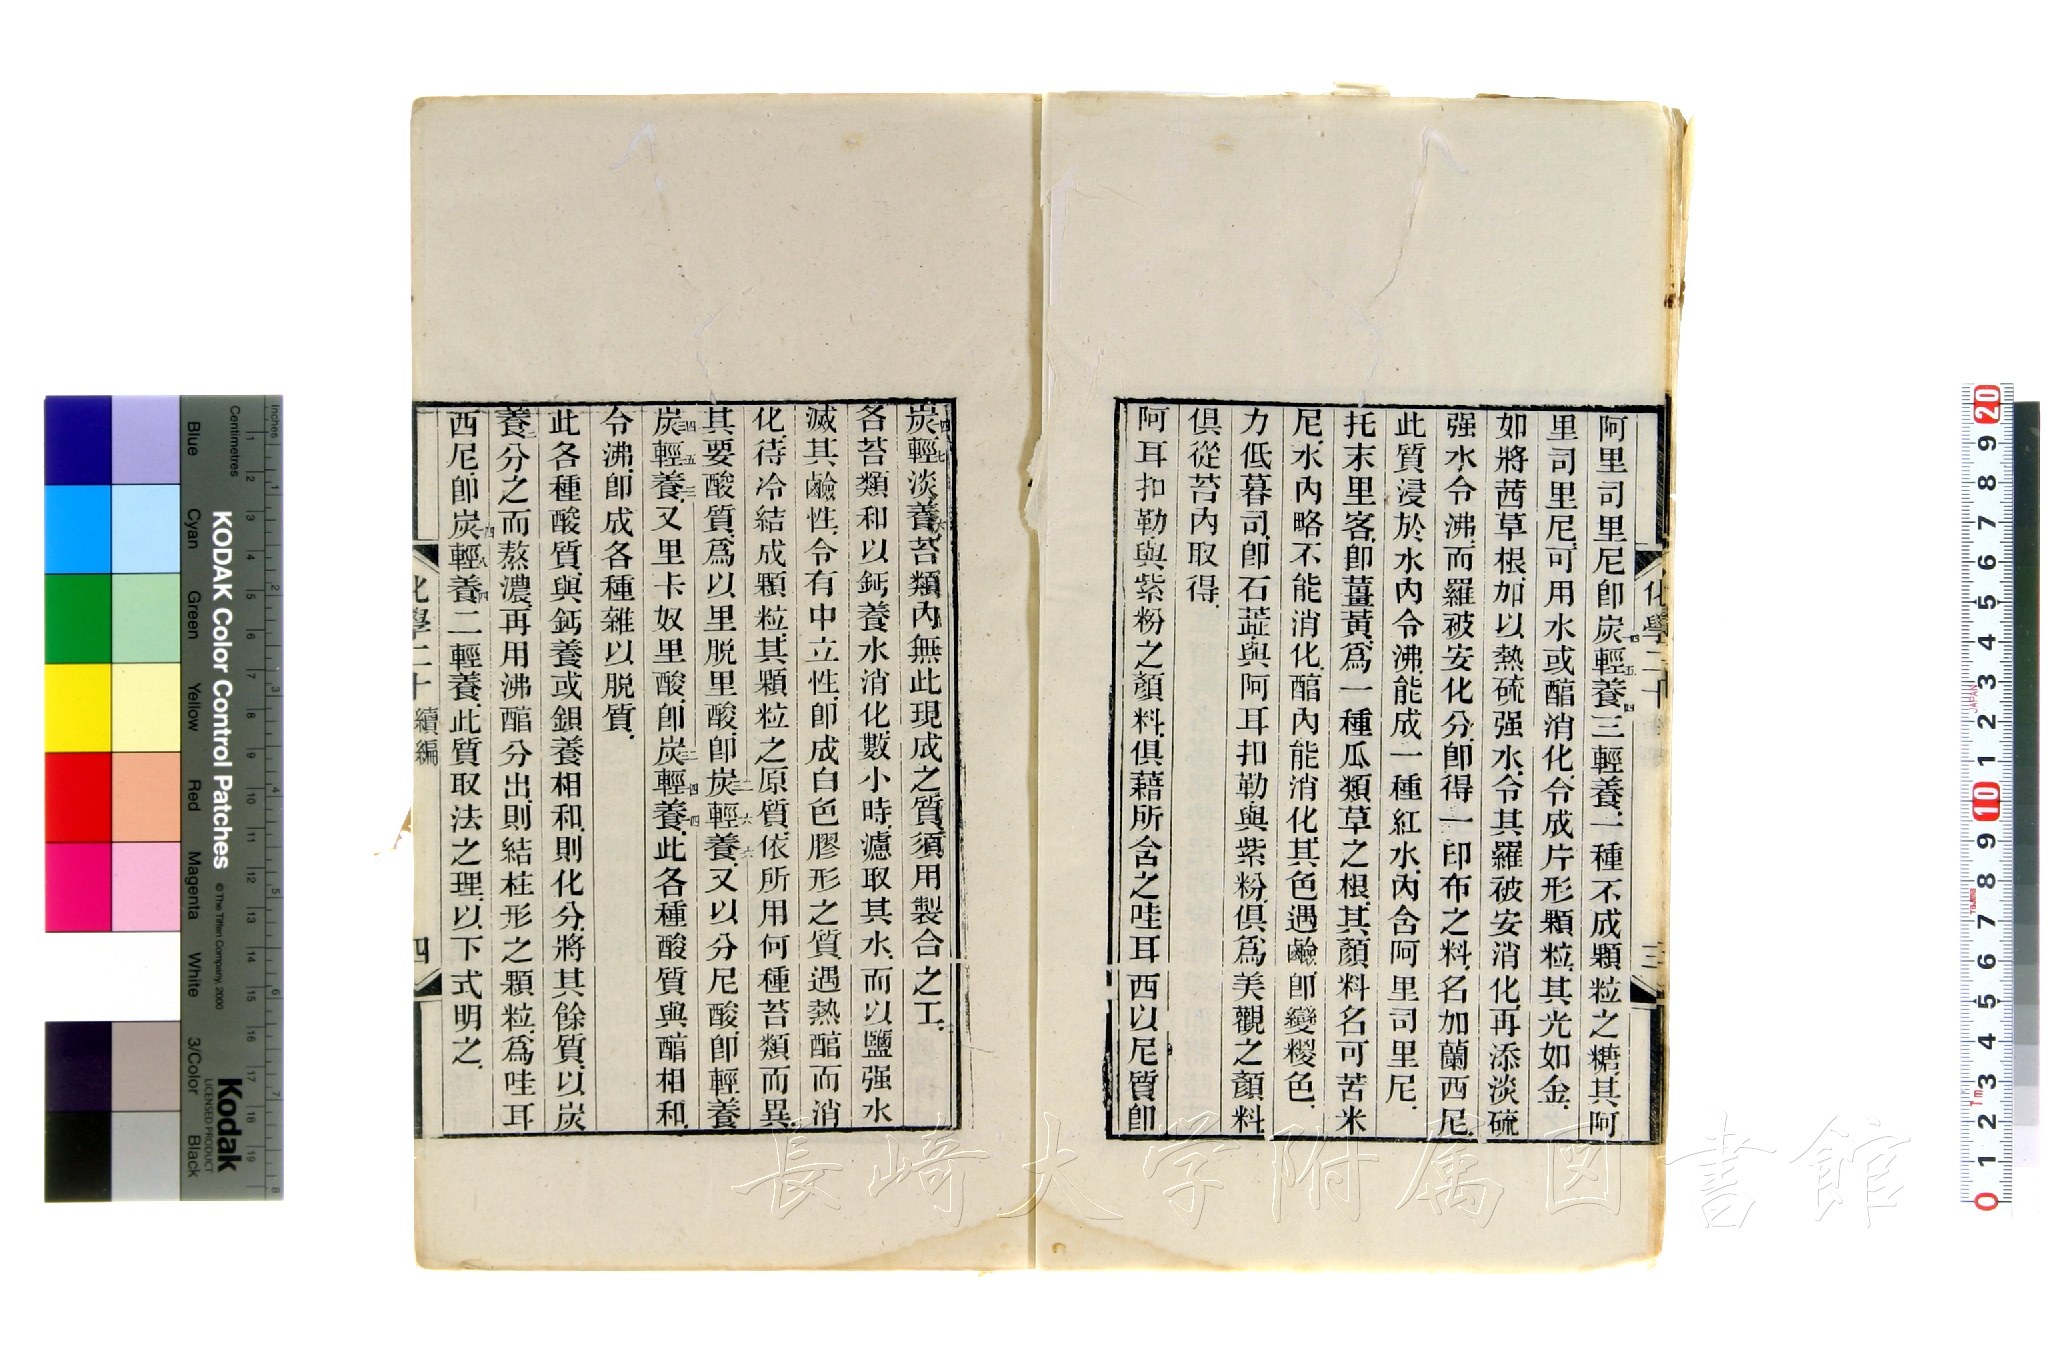 阿里司里尼卽炭輕養三輕養、一種不成顆粒之糖、其阿
四五四
里司里尼、可用水或醕消化、令成片形顆粒、其光如金.
如將茜草根、加以熱硫强水、令其羅被安消化、再添淡硫
强水令沸、而羅被安化分、卽得一印布之料、名加蘭西尼.
此質浸於水內令沸、能成一種紅水、內含阿里司里尼.
托末里客、卽薑黃、爲一種瓜類草之根、其顏料名可苦米
尼、水內略不能消化、醕內能消化、其色遇鹼、卽變椶色.
力低暮司、卽石蕋、與阿耳扣勒、與紫粉、俱爲美觀之顏料
俱從苔內取得.
阿耳扣勒與紫粉之顏料、俱藉所含之哇耳西以尼質、卽
化學二十
三
炭輕淡養、苔類內無此現成之質、須用製合之工.
四七六
各苔類和以鈣養水消化數小時、濾取其水、而以鹽强水
滅其鹼性、令有中立性、卽成白色膠形之質、遇熱醕而消
化、待冷結成顆粒、其顆粒之原質、依所用何種苔類而異.
其要酸質、爲以里脱里酸、卽炭輕養、又以分尼酸、卽輕養
二六六
炭輕養、又里卡奴里酸、卽炭輕養、此各種酸質與醕相和、
四五三
三四四
令沸、卽成各種雜以脫質.
此各種酸質、與鈣養或鋇養相和、則化分、將其餘質、以炭
養分之而熬濃、再用沸醕分出、則結柱形之顆粒、爲哇耳
二
西尼、卽炭輕養二輕養、此質取法之理、以下式明之.
四八四
化學二十 續編
四
長崎大学附属図書館
KODAK Color Control Patches
© The Tiffen Company, 2000
Kodak
LICENSED PRODUCT
Inches
Centimetres
Blue
Cyan
Green
Yellow
Red
Magenta
White
3/Color
Black
JAPAN
Tajima
1m